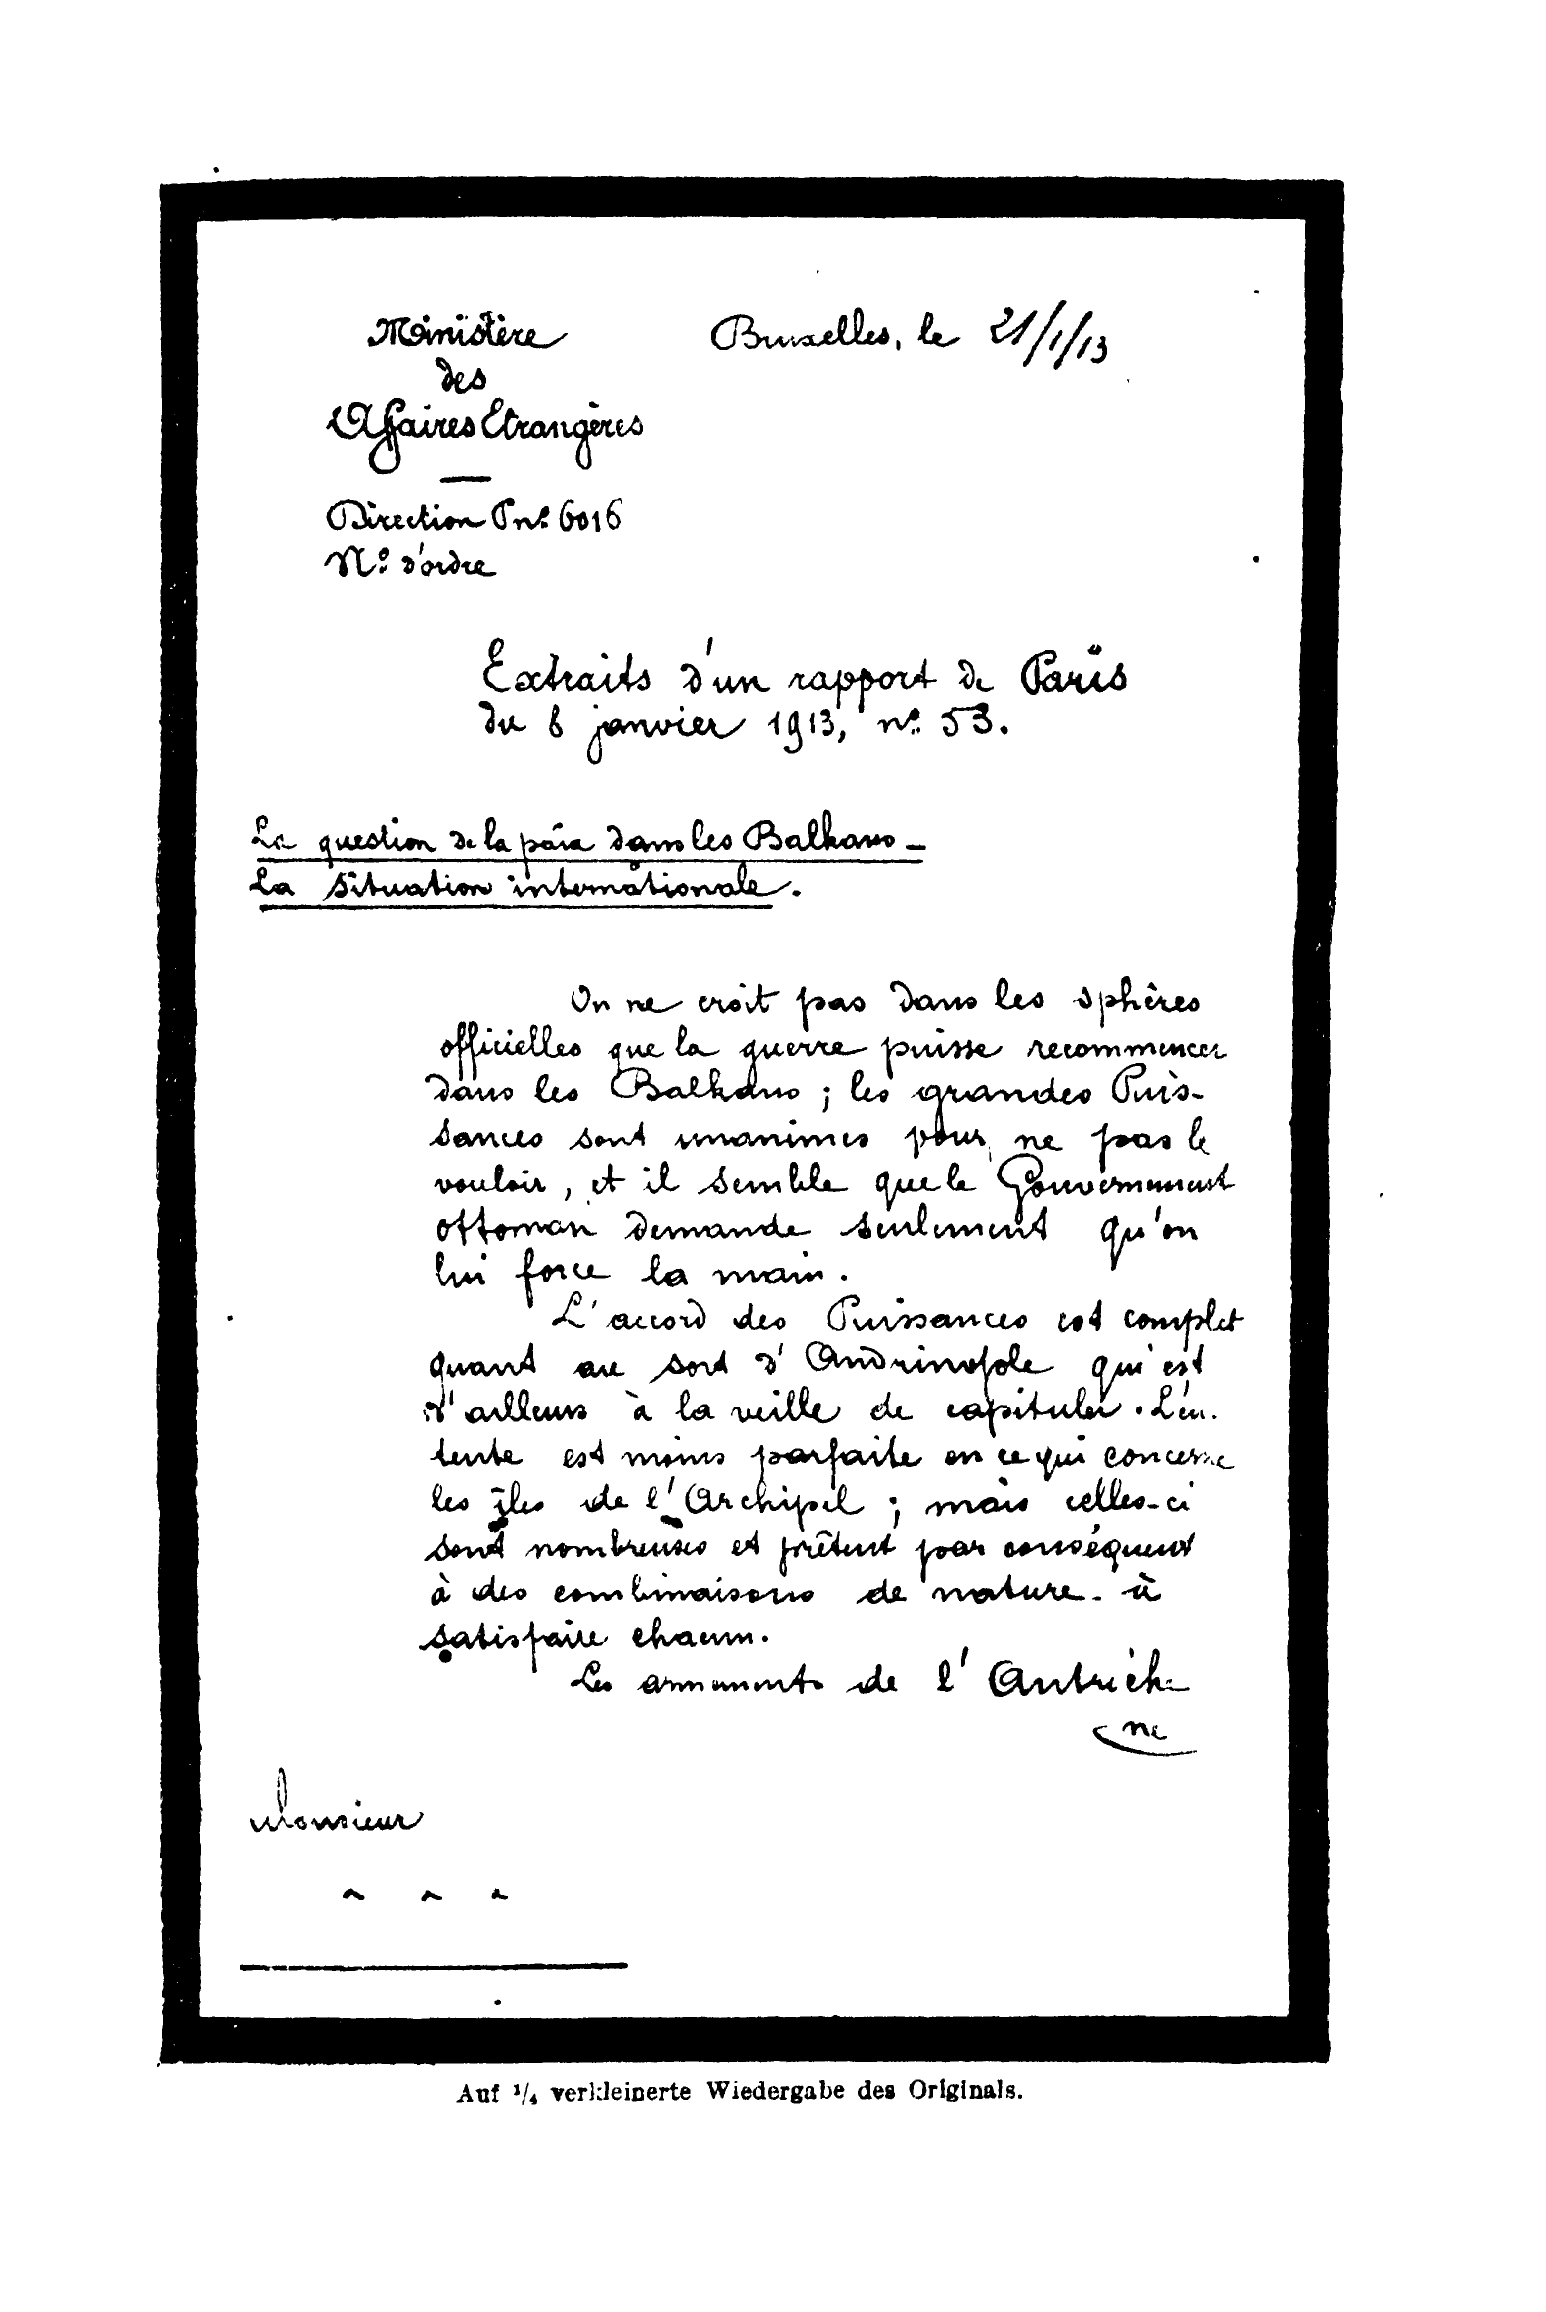 Ministère
des
Affaires Etrangères
Bruxelles, le 21/1/13
Direction P nº 6016
Nº d'ordre
Extraits d'un rapport de Paris
du 8 janvier 1913, nº 53.
La question de la paix dans les Balkans -
La situation internationale.
On ne croit pas dans les sphères
officielles que la guerre puisse recommencer
dans les Balkans ; les grandes Puis-
sances sont unanimes pour ne pas le
vouloir, et il semble que le Gouvernement
ottoman demande seulement qu'on
lui force la main.
L'accord des Puissances est complet
quant au sort d'Andrinople qui est
d'ailleurs à la veille de capituler. L'en-
tente est moins parfaite en ce qui concerne
les îles de l'Archipel ; mais celles-ci
sont nombreuses et prêtent par conséquent
à des combinaisons de nature à
satisfaire chacun.
Les armements de l'Autriche
ne
Monsieur
Auf 1/4 verkleinerte Wiedergabe des Originals.